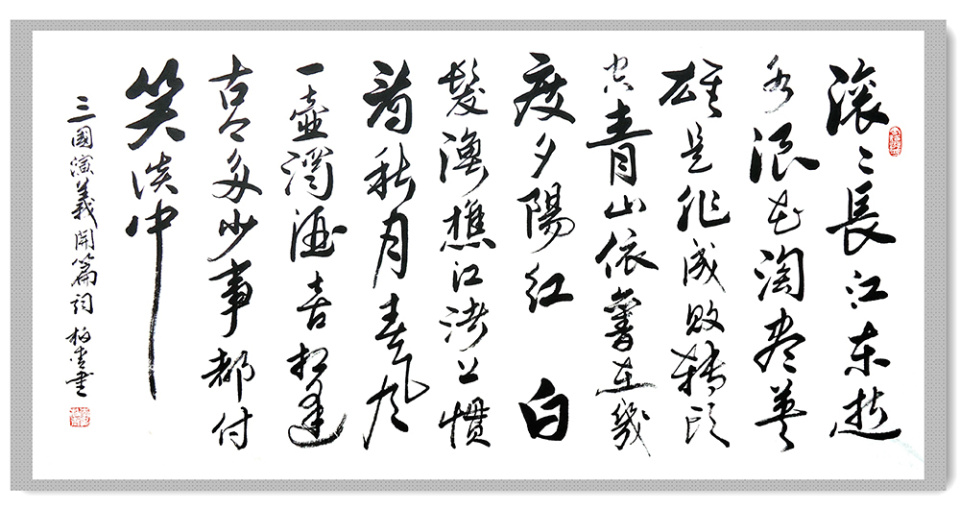 滚〻長江东逝
水浪花淘尽英
雄是非成敗轉头
空青山依舊在幾
度夕陽红 白
髮渔樵江渚上慣
看秋月春风
一壶濁酒喜相逢
古今多少事都付
笑谈中
三國演義開篇词 柏書